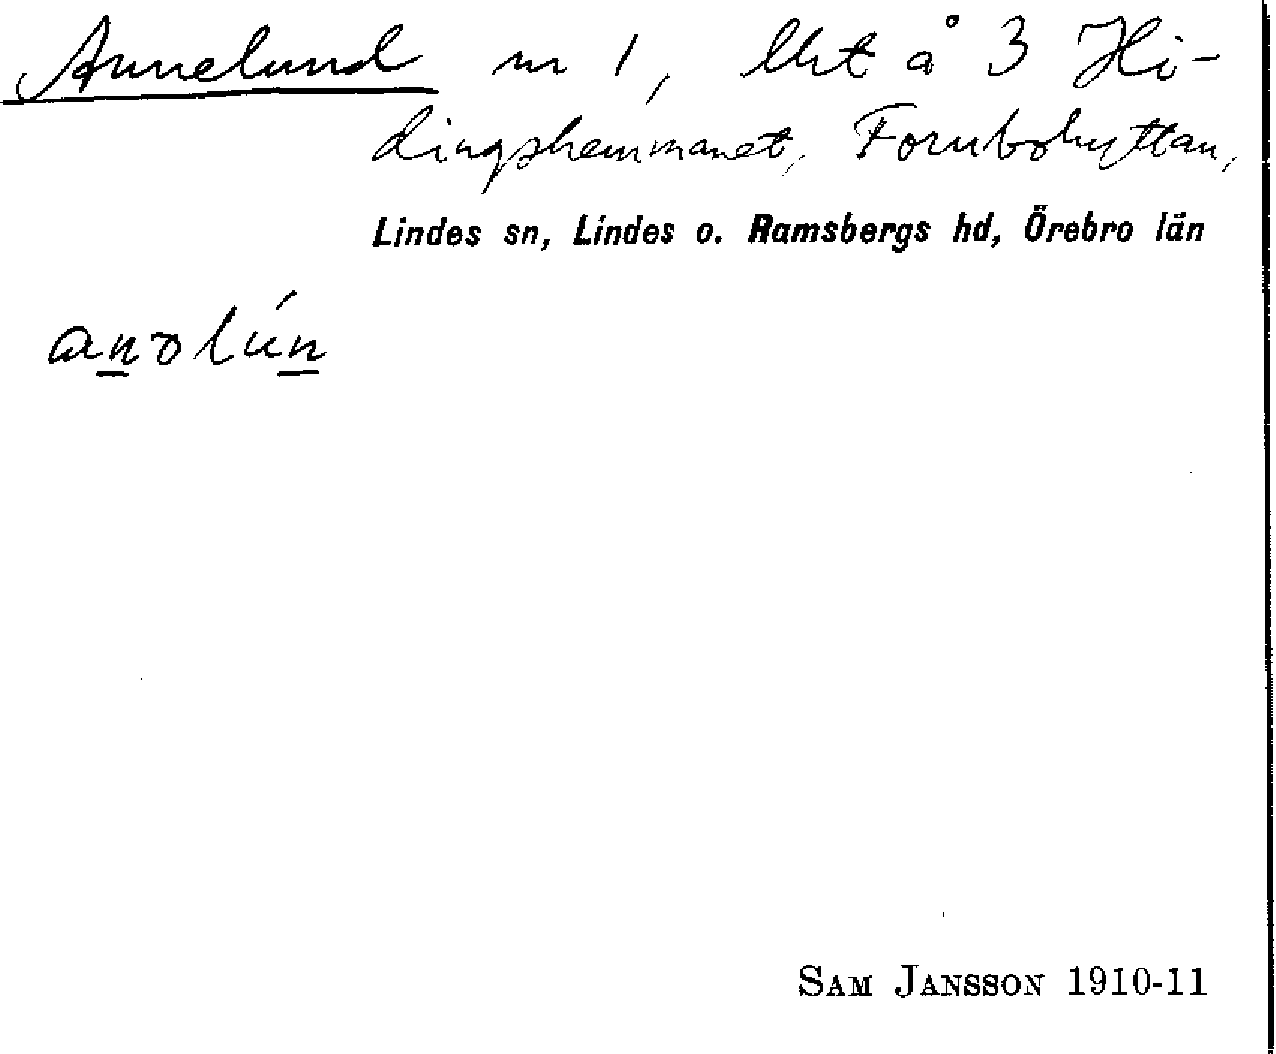 Annelund nr 1, lht å 3 Hi-
dingshemmanet, Fornbohyttan,
Lindes sn, Lindes o. Ramsbergs hd, Örebro län
anolún
SAM JANSSON 1910-11